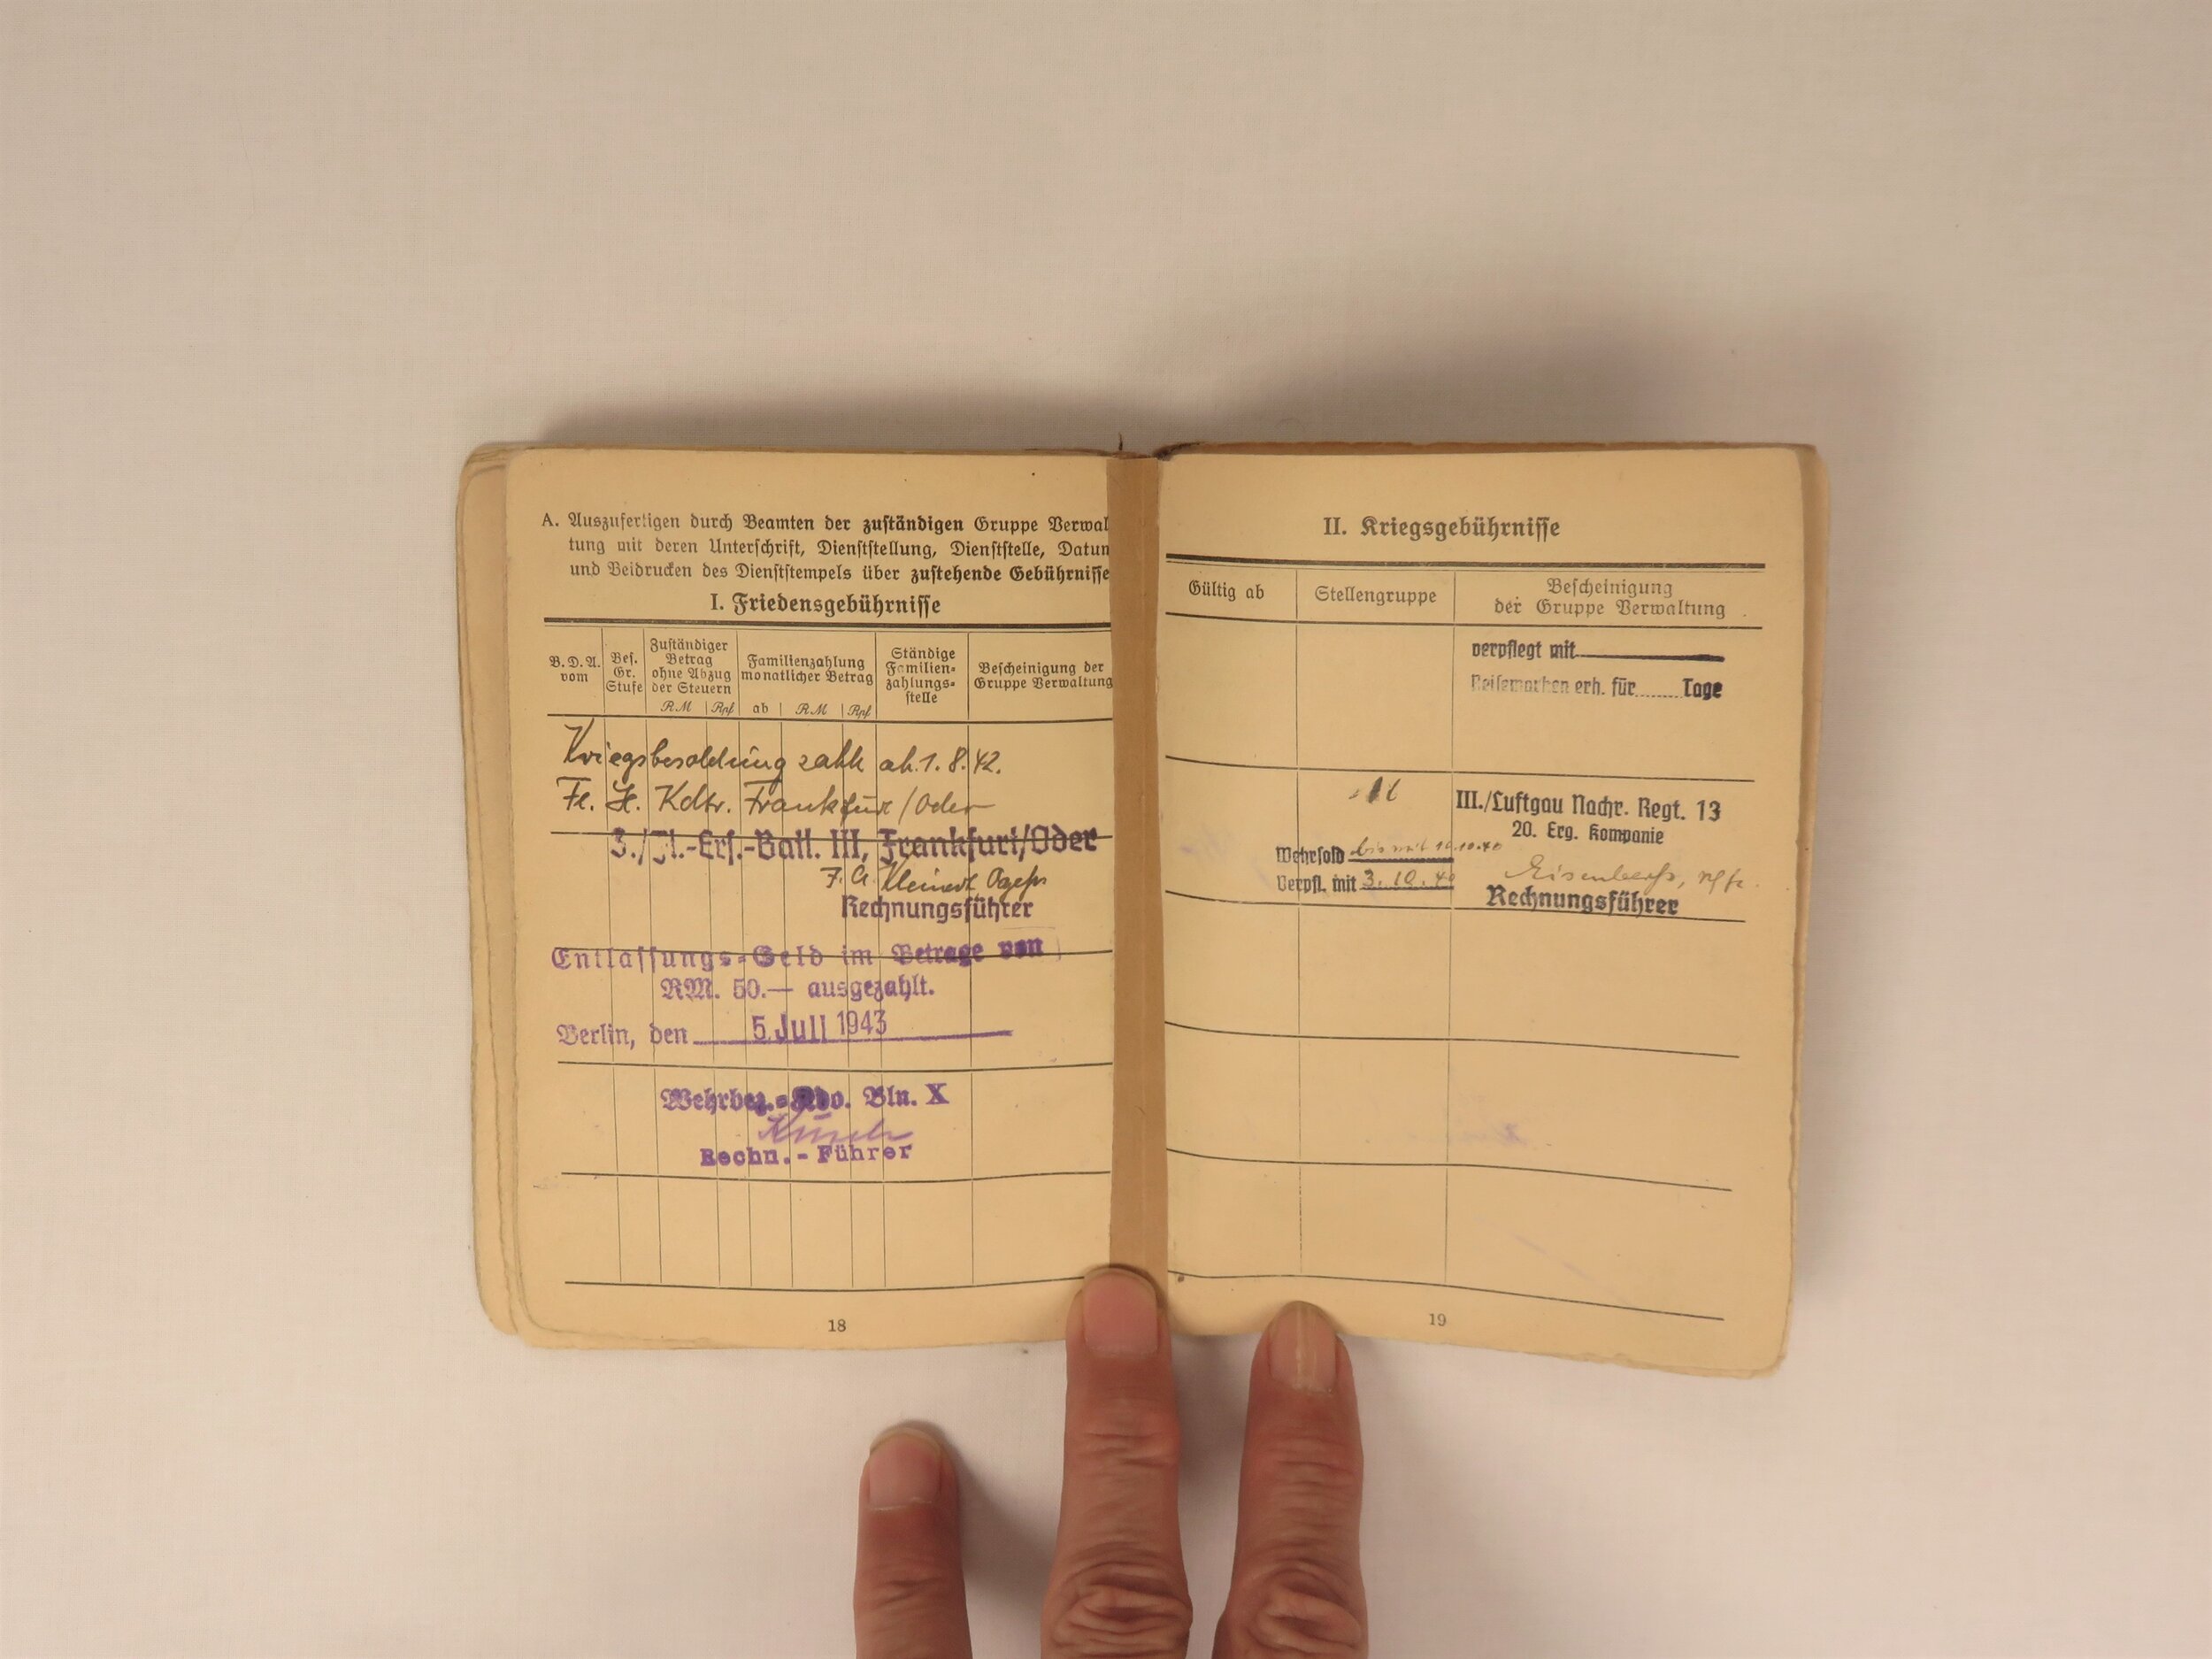 A. Auszufertigen durch Beamten der zuständigen Gruppe Verwal
tung mit deren Unterschrift, Dienststellung, Dienststelle, Datum
und Beidrucken des Dienststempels über zustehende Gebührnisse
I. Friedensgebührnisse
B. D. A. vom
Bes. Gr. Stufe
Zuständiger Betrag ohne Abzug der Steuern
Familienzahlung monatlicher Betrag
Ständige Familien- zahlungs- stelle
Bescheinigung der Gruppe Verwaltung
RM Rpf ab RM Rpf
Kriegsbesoldung zahlt ab 1. 8. 42.
Fl. H. Kdtr. Frankfurt/Oder
3./Fl.-Ers.-Batl. III, Frankfurt/Oder
Rechnungsführer
Entlassungs-Geld im Betrage von
RM. 50.— ausgezahlt.
Berlin, den 5. Juli 1943
Wehrbez.-Kdo. Bln. X
Rechn.-Führer
18
II. Kriegsgebührnisse
Gültig ab
Stellengruppe
Bescheinigung
der Gruppe Verwaltung
verpflegt mit
Reisemarken erh. für ...... Tage
III./Luftgau Nachr. Regt. 13
20. Erg. Kompanie
Wehrsold bis mit 10.10.40
Verpfl. mit 3. 10. 40
Rechnungsführer
19